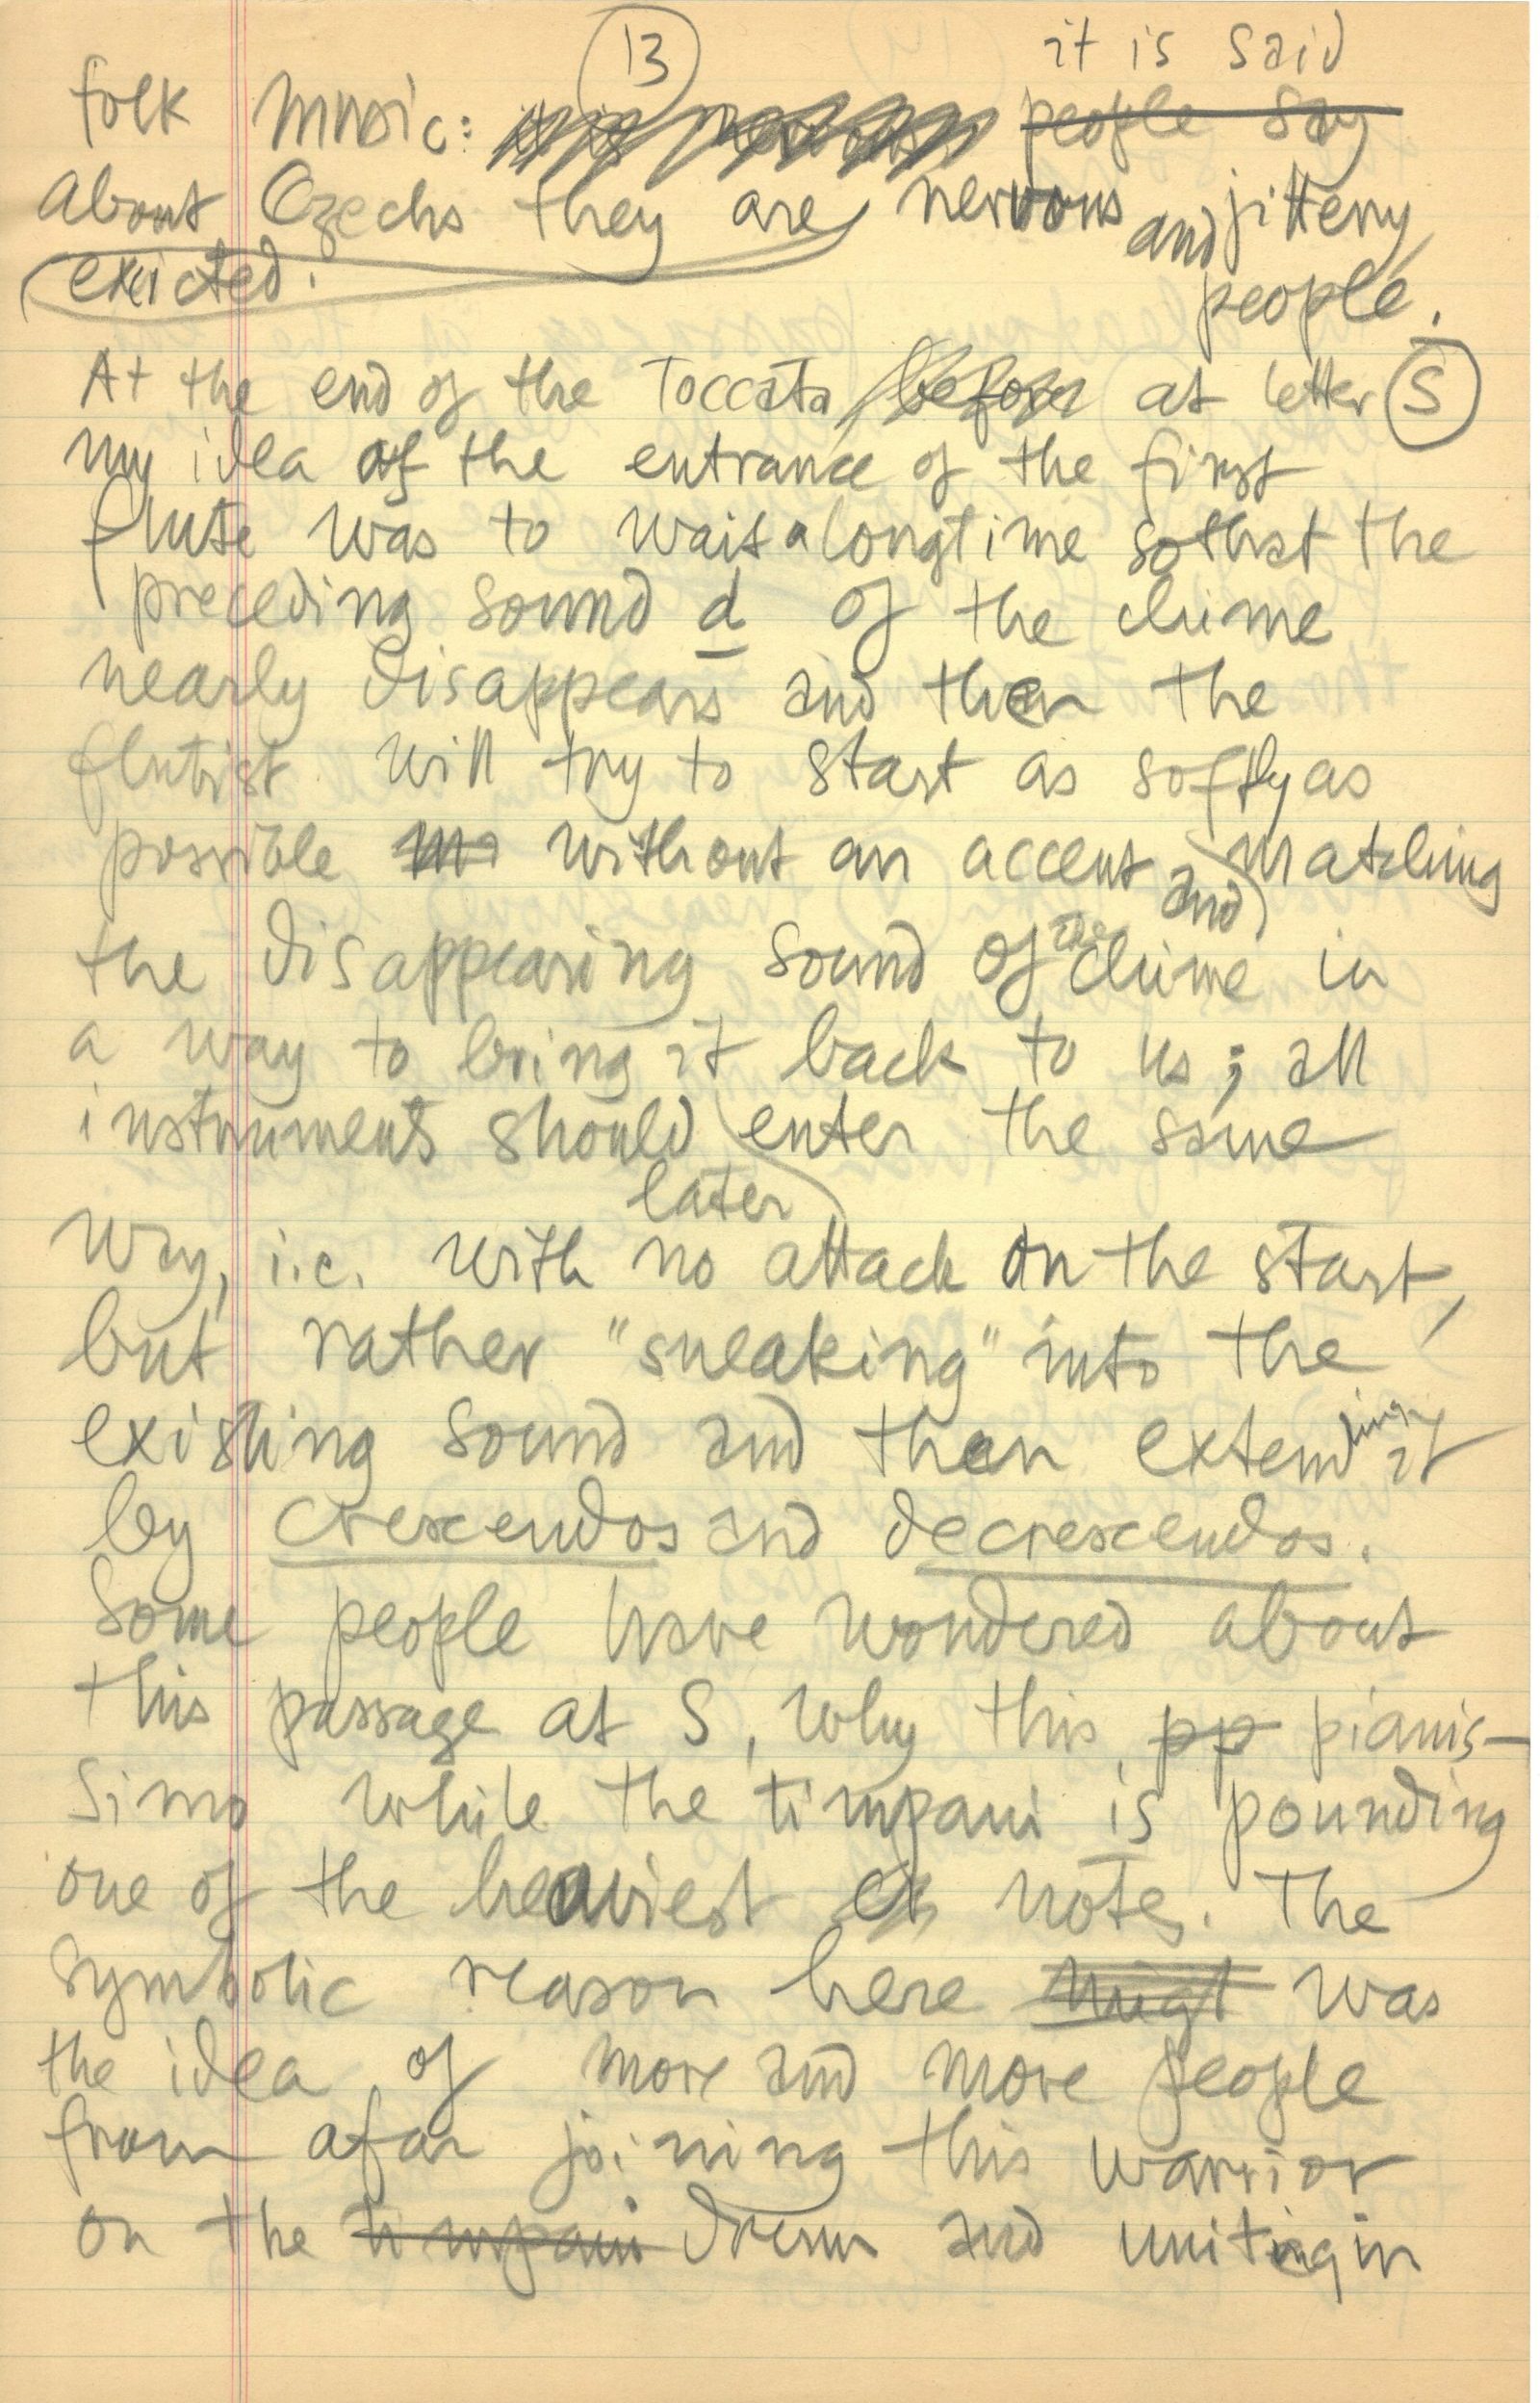 13
it is said
folk music: people say
about Czechs they are nervous and jittery
exicted. people.
At the end of the Toccata before at letter S
my idea of the entrance of the first
flute was to wait a longtime so that the
preceding sound d of the chime
nearly disappears and then the
flutist will try to start as softly as
possible without an accent and matching
the disappearing sound of the chime in
a way to bring it back to us; all
instruments should enter the same
later
way, i.e. with no attack on the start,
but rather "sneaking" into the
existing sound and then extending it
by crescendos and decrescendos.
Some people have wondered about
this passage at S, why this pp pianis-
simo while the timpani is pounding
one of the heaviest notes. The
symbolic reason here migt was
the idea of more and more people
from afar joining this warrior
on the timpani drum and uniting in